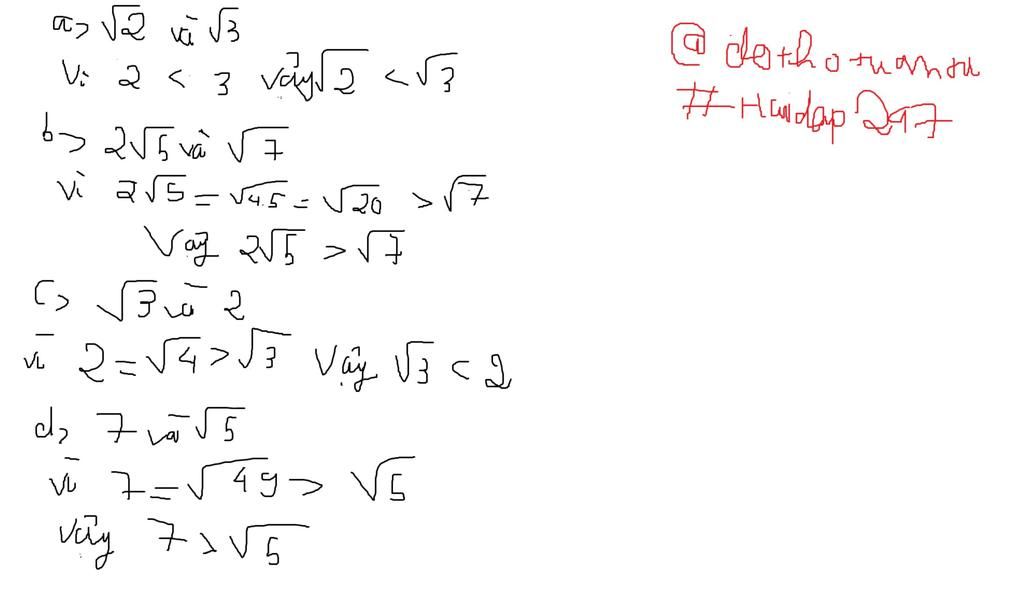 a> √2 và √3
Vì 2 < 3 vậy √2 < √3
b> 2√5 và √7
vì 2√5 = √4.5 = √20 > √7
Vậy 2√5 > √7
c> √3 và 2
vì 2 = √4 > √3 Vậy √3 < 2
d> 7 và √5
vì 7 = √49 > √5
vậy 7 > √5
#Hoidap247